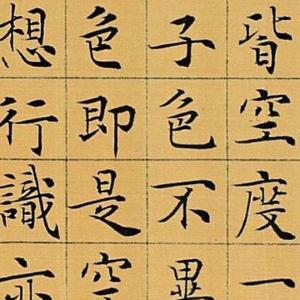 皆空度一
子色不異
色即是空
想行識亦